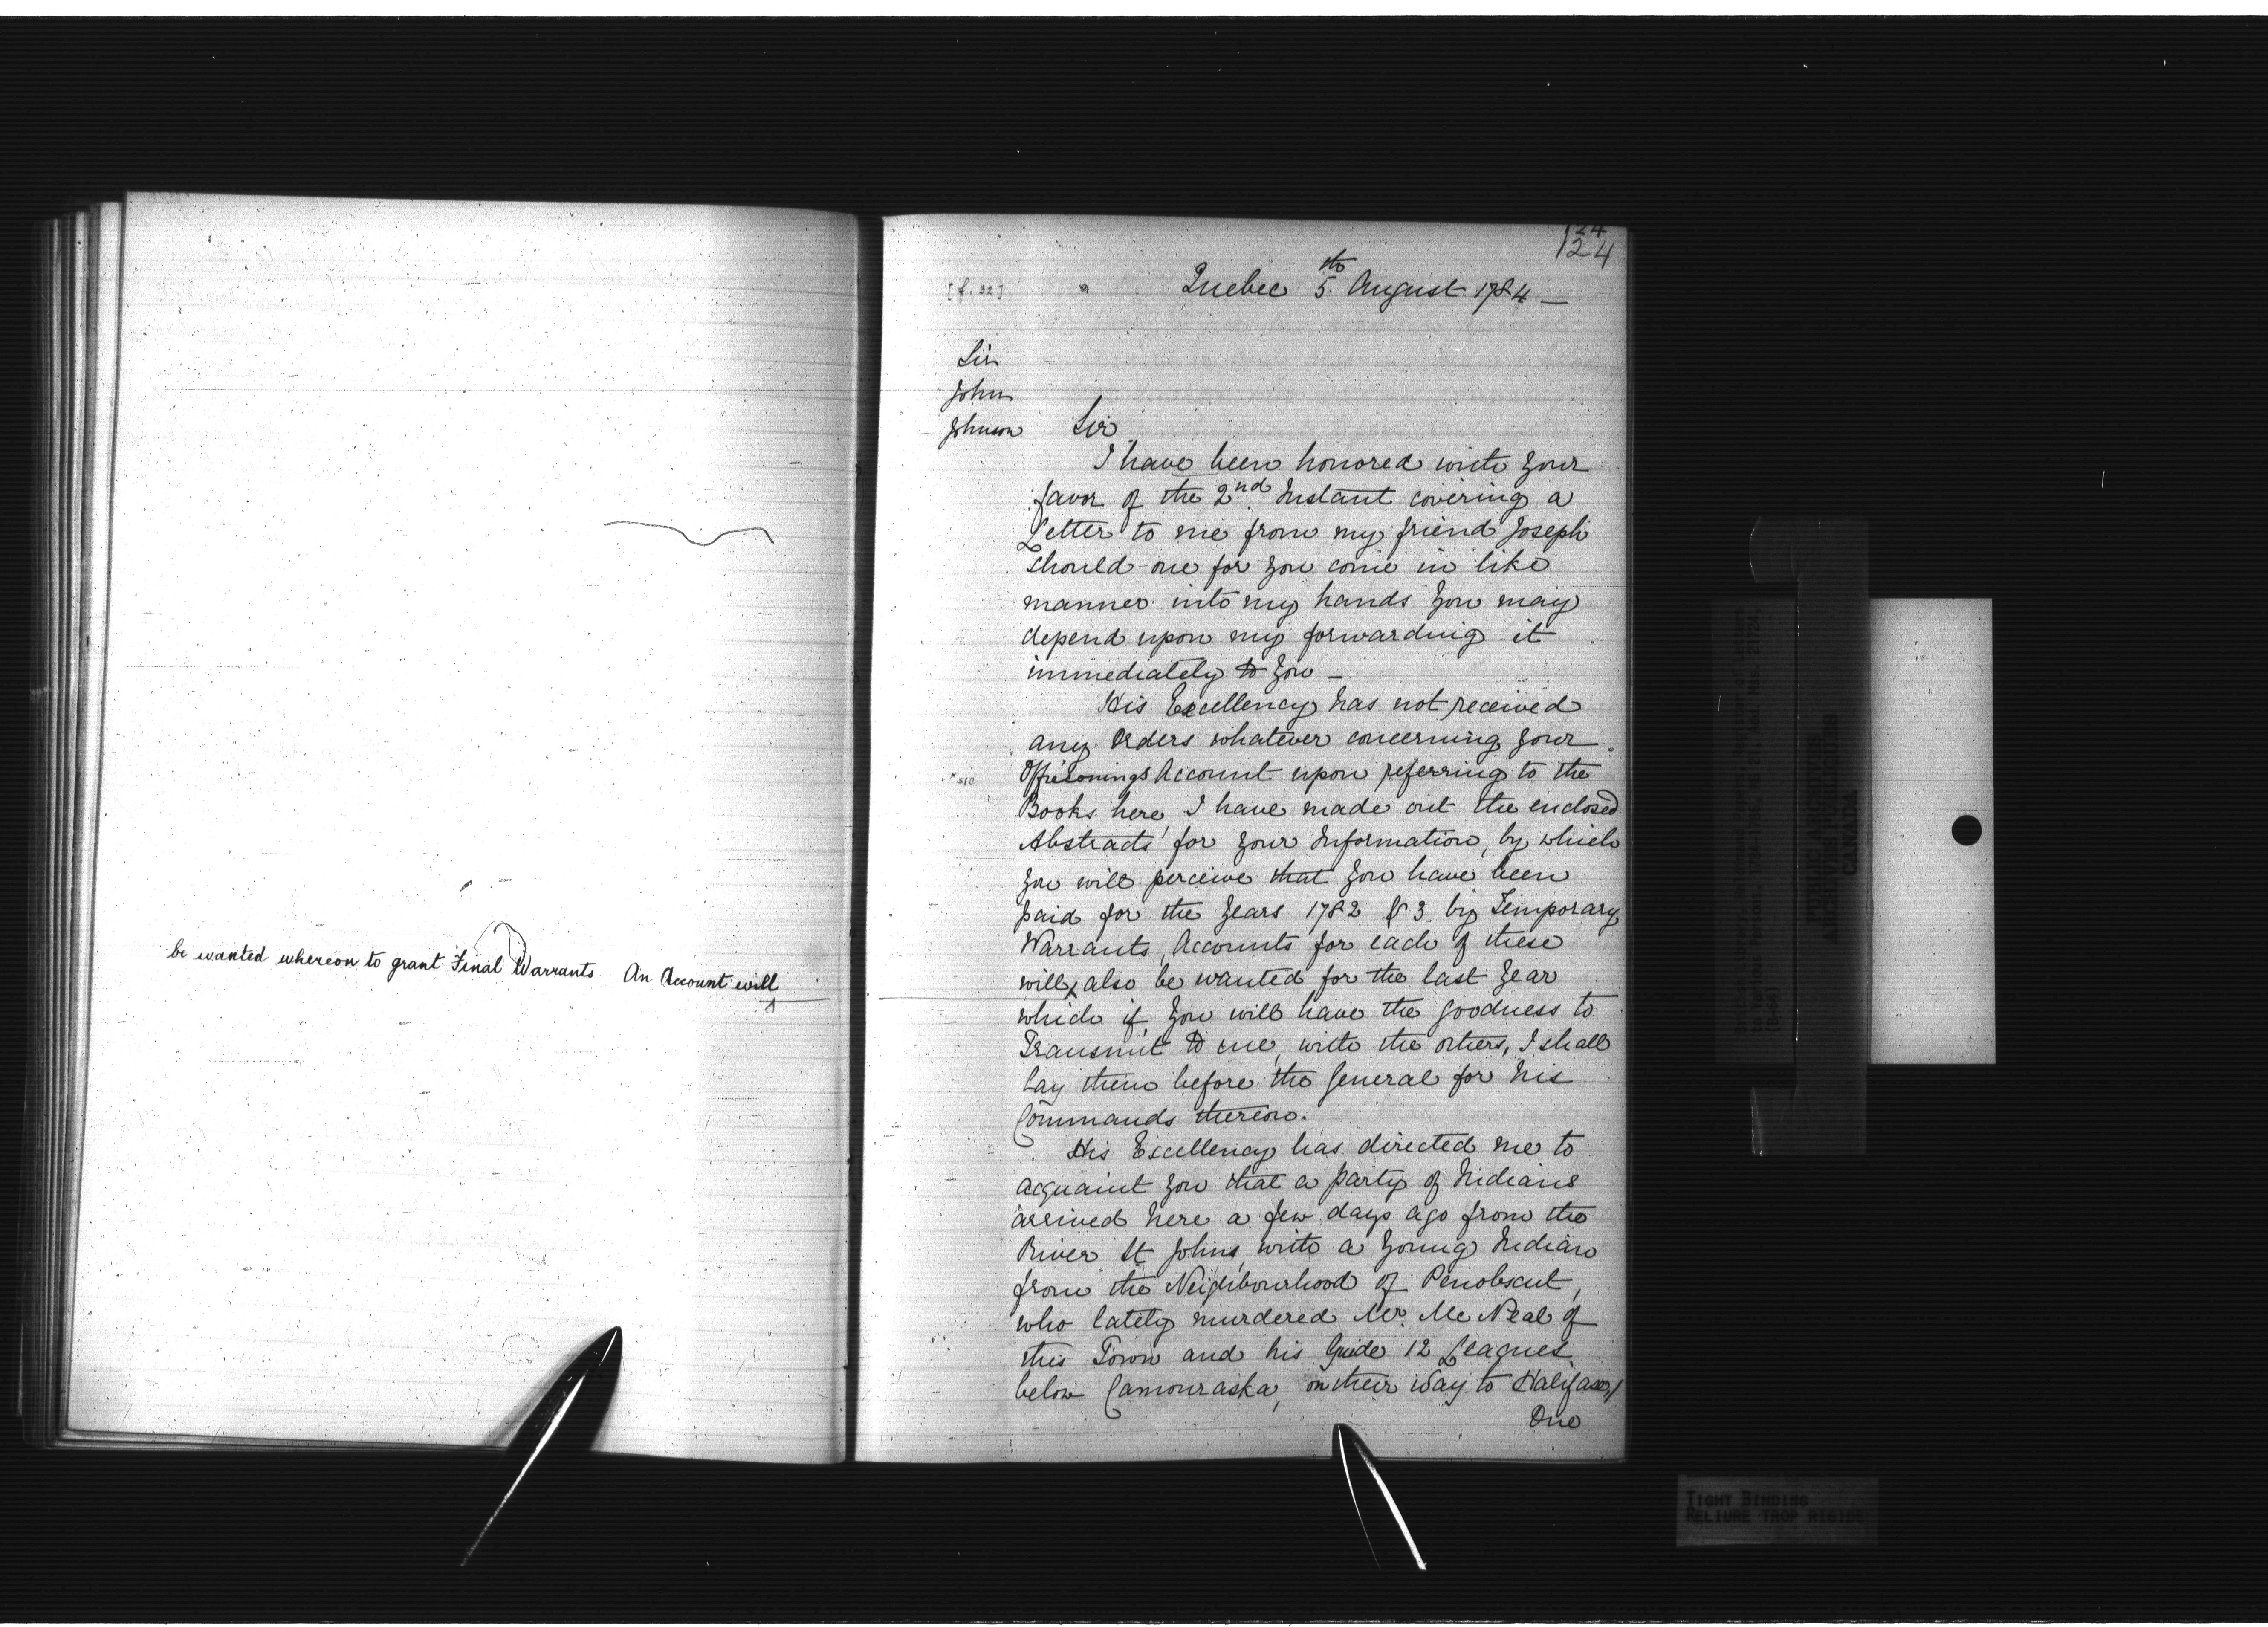 be wanted whereon to grant Final Warrants. An Account will
124
124
[f. 32]
Quebec 5th August 1784 —
Sir
John
Johnson
Sir
I have been honored with your
favor of the 2nd Instant covering a
Letter to me from my friend Joseph
should one for you come in like
manner into my hands you may
depend upon my forwarding it
immediately to you —
His Excellency has not received
any Orders whatever concerning your
*sic
Account upon referring to the
Books here, I have made out the enclosed
Abstracts for your Information, by which
you will perceive that you have been
paid for the years 1782 & 3 by Temporary
Warrants, Accounts for each of these
will also be wanted for the last year
which if you will have the goodness to
Transmit to me, with the others, I shall
lay them before the General for his
Commands thereon.
His Excellency has directed me to
acquaint you that a party of Indians
arrived here a few days ago from the
River St Johns, with a young Indian
from the Neighbourhood of Penobscut,
who lately murdered Mr. Mc Neal of
this Town and his Guide 12 Leagues
below Camouraska, on their way to Halifax,
One
British Library, Haldimand Papers, Register of Letters
to Various Persons, 1784-1786. MG 21, Add. Mss. 21724,
(B-64)
PUBLIC ARCHIVES
ARCHIVES PUBLIQUES
CANADA
TIGHT BINDING
RELIURE TROP RIGIDE